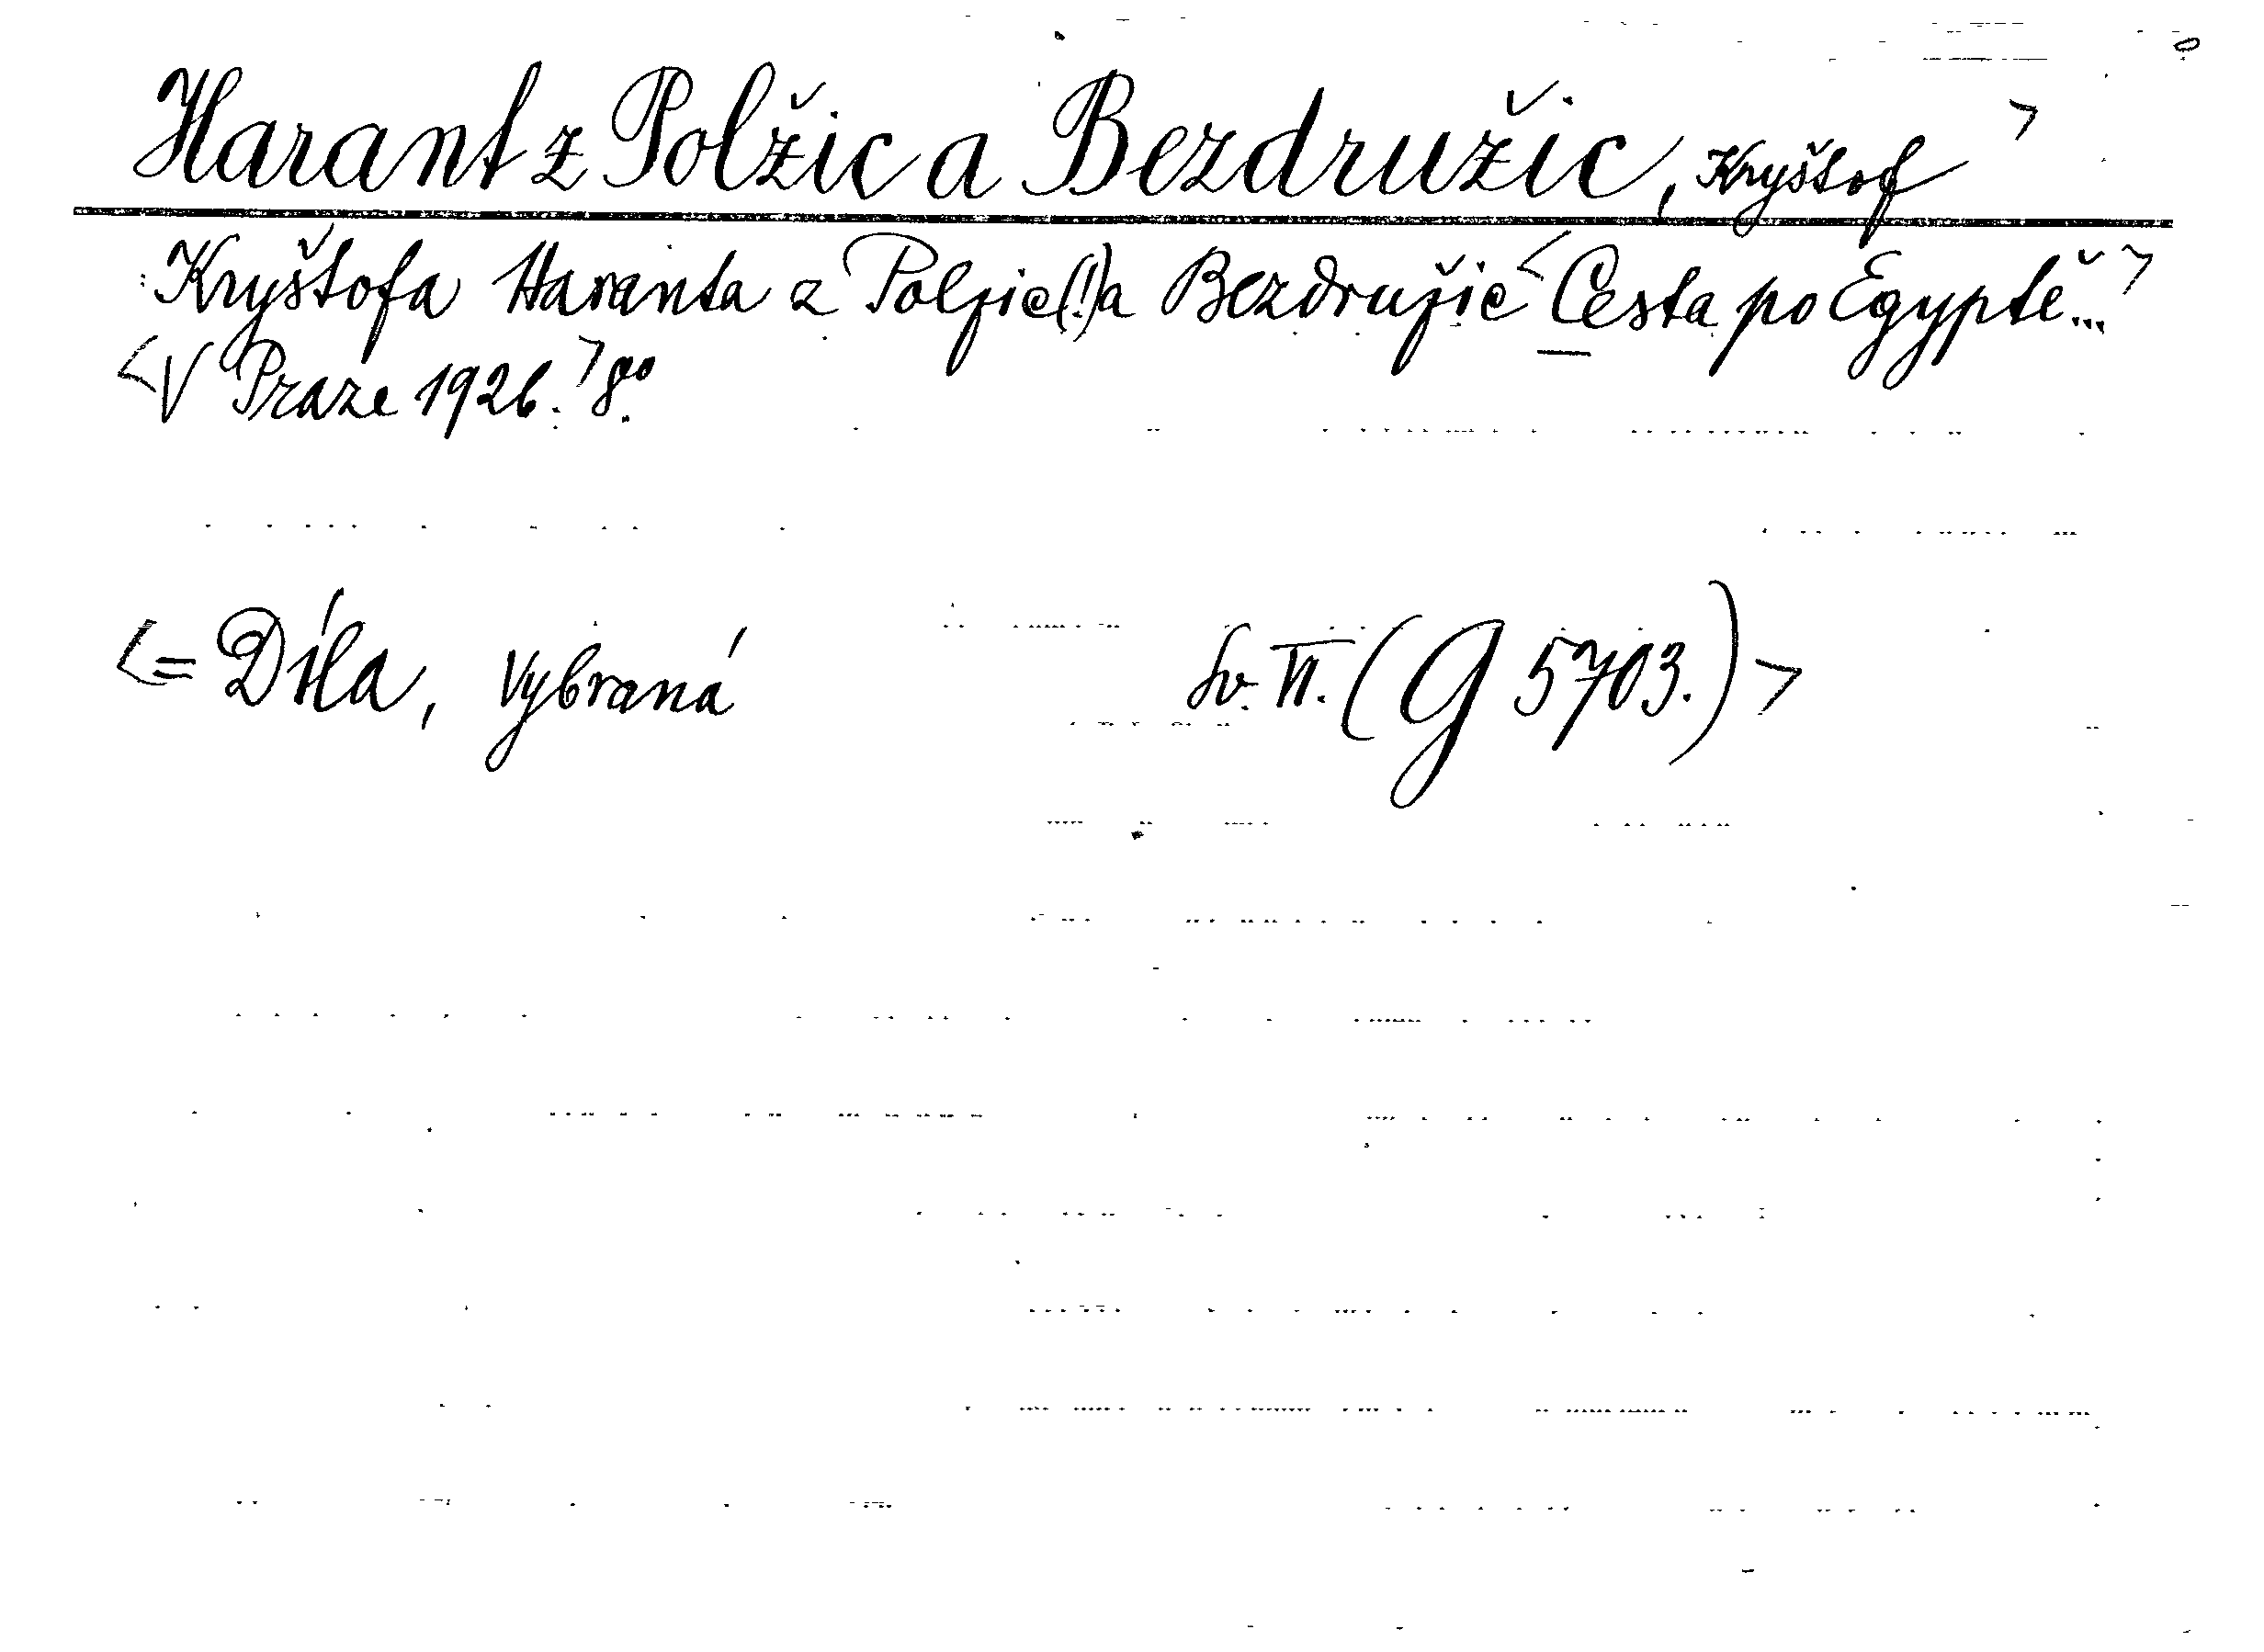 Harant z Polžic a Bezdružic, Kryštof >
Kryštofa Haranta z Polzic(!)a Bezdružic < Cesta po Egyptě... >
<V Praze 1926.> 8°.
<= Díla, vybraná Sv. VI. (G 5703.)>